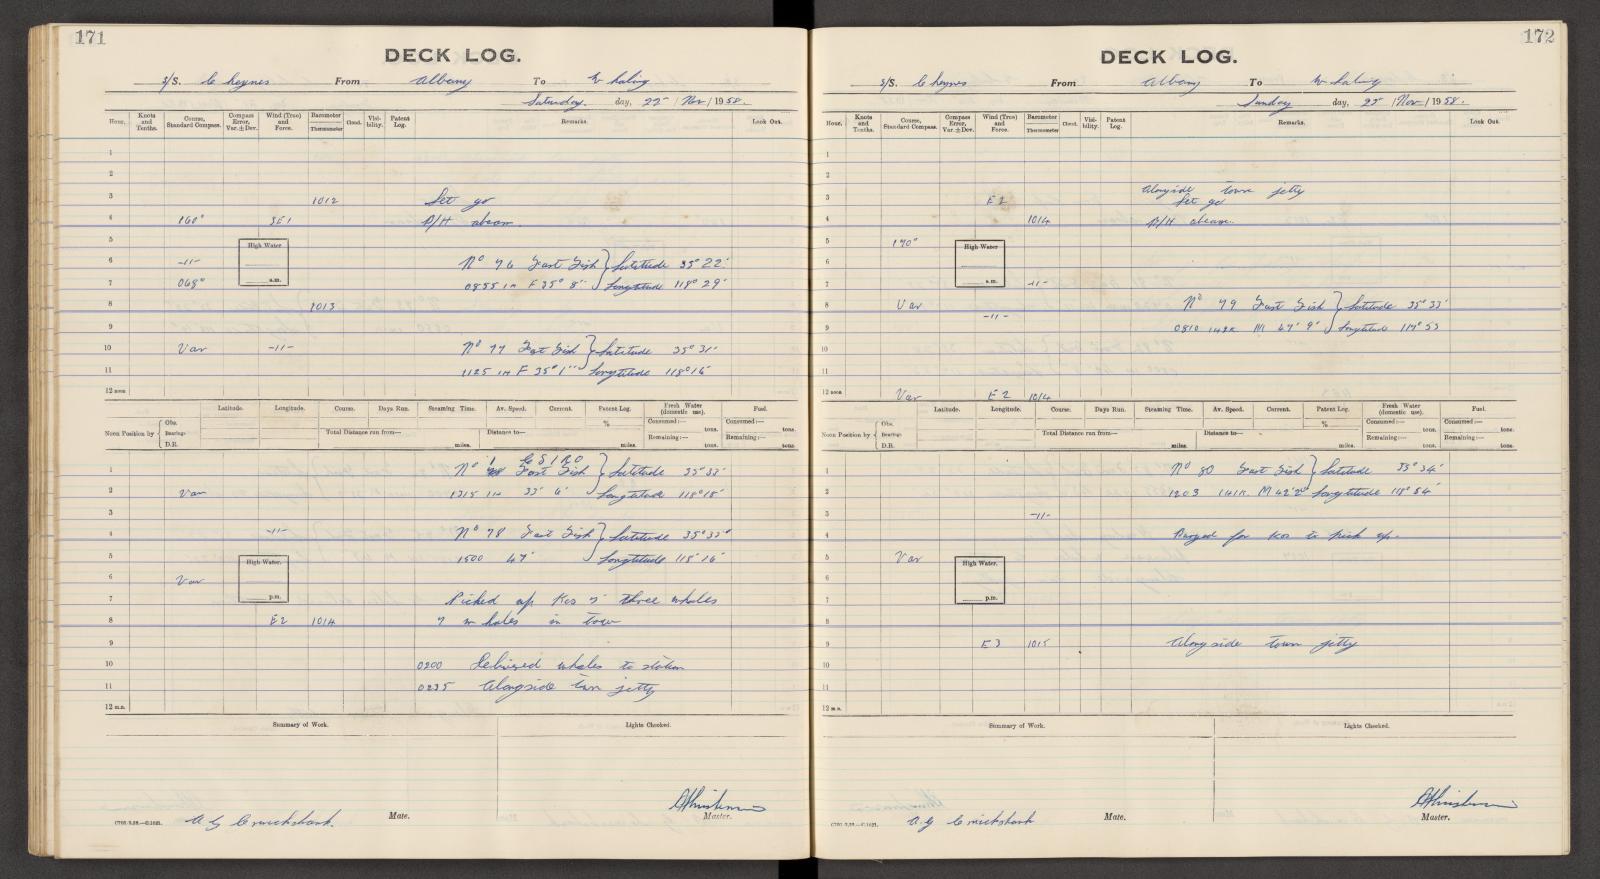 171
DECK LOG.
S/S. Cheynes From Albany To Whaling
Saturday. day, 22 / Nov / 1958.
Hour. Knots and Tenths. Course, Standard Compass. Compass Error, Var. ± Dev. Wind (True) and Force. Barometer Thermometer Cloud. Visibility. Patent Log. Remarks. Look Out.
1
2
3 1012 Let go
4 160° SE1 B/H abeam.
5
High Water
6 -11- No 76 Fast Fish } Latitude 35° 22'
7 068° a.m. 0855 F 35° 8" Longtitude 118° 29'
8 1013
9
10 Var -11- No 77 Fast Fish } Latitude 35° 31'
11 1125 F 35° 1" Longtitude 118° 16'
12 noon
Latitude. Longitude. Course. Days Run. Steaming Time. Av. Speed. Current. Patent Log. Fresh Water (domestic use). Fuel.
% Consumed:— tons. Consumed:— tons.
Noon Position by { Obs. Bearings D.R. Total Distance run from— miles. Distance to— miles. Remaining:— tons. Remaining:— tons.
CSIRO
1 No Fast Fish } Latitude 35° 33'
2 Var 1315 33' 6' Longtitude 118° 18'
3
4 -11- No 78 Fast Fish } Latitude 35° 33'
5 1500 47' Longtitude 118° 16'
High Water.
6 Var
7 p.m. Picked up Kos three whales
8 E2 1014 7 whales in tow
9
10 0200 Delivered whales to station
11 0235 Alongside town jetty
12 m.n.
Summary of Work. Lights Checked.
A G Cruickshank. Mate. Master.
172
DECK LOG.
S/S. Cheynes From Albany To Whaling
Sunday day, 23 / Nov / 1958.
Hour. Knots and Tenths. Course, Standard Compass. Compass Error, Var. ± Dev. Wind (True) and Force. Barometer Thermometer Cloud. Visibility. Patent Log. Remarks. Look Out.
1
2
Alongside town jetty
3 E2 Let go
4 1014 B/H abeam.
5 170°
High Water
6
7 a.m. -11-
8 Var No 79 Fast Fish } Latitude 35° 33'
9 -11- 0810 M 47' 9" Longtitude 117° 53
10
11
12 noon Var E2 1014
Latitude. Longitude. Course. Days Run. Steaming Time. Av. Speed. Current. Patent Log. Fresh Water (domestic use). Fuel.
% Consumed:— tons. Consumed:— tons.
Noon Position by { Obs. Bearings D.R. Total Distance run from— miles. Distance to— miles. Remaining:— tons. Remaining:— tons.
1 No 80 Fast Fish } Latitude 35° 34'
2 1203 M 42' 2" Longtitude 118° 54'
3 -11-
4 for Kos to pick up.
5 Var
High Water.
6
7 p.m.
8
9 E3 1015 Alongside town jetty
10
11
12 m.n.
Summary of Work. Lights Checked.
A G Cruickshank Mate. Master.